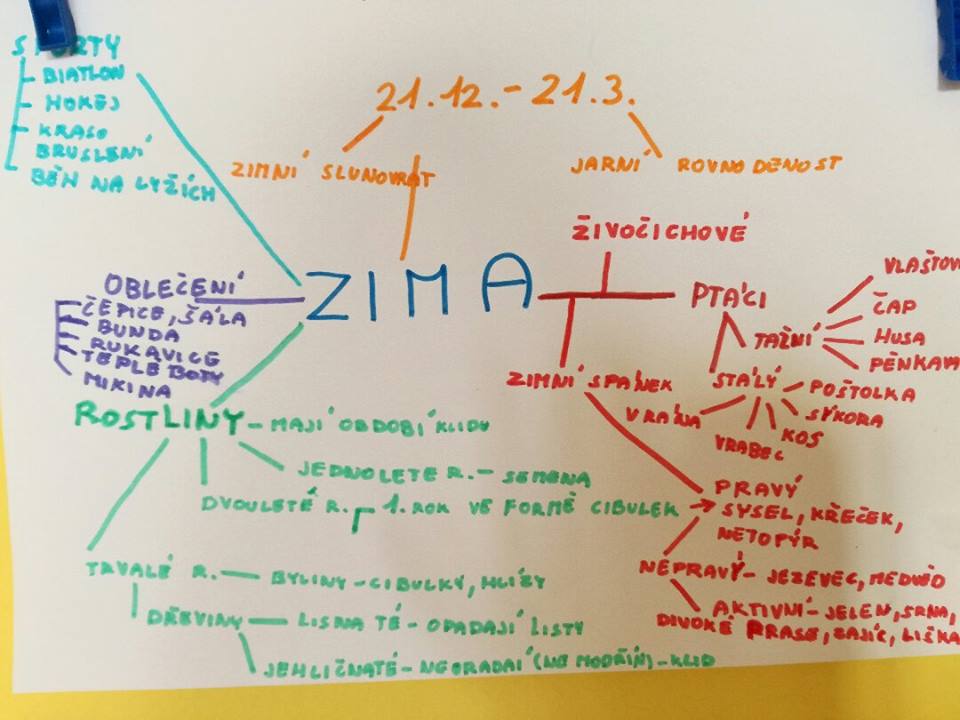 SPORTY
BIATLON
HOKEJ
KRASO
BRUSLENÍ
BĚH NA LYŽÍCH
21.12.- 21.3.
ZIMNÍ SLUNOVRAT
JARNÍ ROVNODENOST
ZIMA
OBLEČENÍ
ČEPICE, ŠÁLA
BUNDA
RUKAVICE
TEPLÉ BOTY
MIKINA
ŽIVOČICHOVÉ
PTÁCI
TAŽNÍ
VLAŠTOV
ČAP
HUSA
PĚNKAVA
STÁLÝ
POŠTOLKA
SÝKORA
KOS
VRABEC
VRÁNA
ZIMNÍ SPÁNEK
PRAVÝ
SYSEL, KŘEČEK,
NETOPÝR
NEPRAVÝ - JEZEVEC, MEDVĚD
AKTIVNÍ - JELEN, SRNA,
DIVOKÉ PRASE, ZAJÍC, LIŠKA
ROSTLINY - MAJÍ OBDOBÍ KLIDU
JEDNOLETÉ R. - SEMENA
DVOULETÉ R. 1. ROK VE FORMĚ CIBULEK
TRVALÉ R. - BYLINY - CIBULKY, HLÍZY
DŘEVINY - LISNATÉ - OPADAJÍ LISTY
JEHLIČNATÉ - NEOPADAJÍ (NE MODŘÍN) - KLID